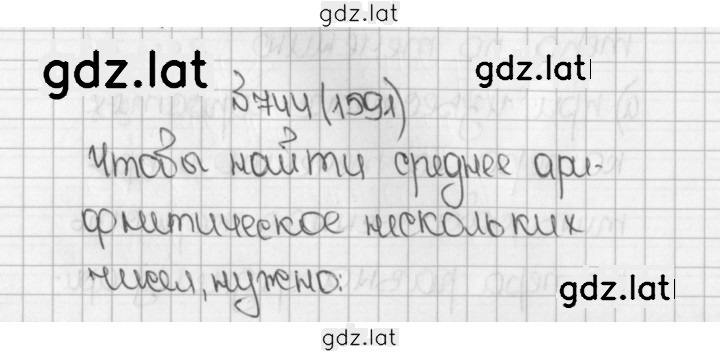 gdz.lat
gdz.lat gdz.lat
№ 744 (1591)
Чтобы найти среднее ари-
фмитическое нескольких
чисел, нужно:
gdz.lat
gdz.lat